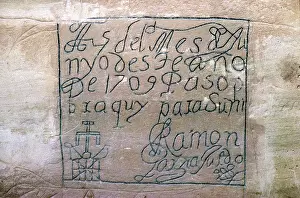 A 5 del Mes de Ju
nyo deste ano
De 1709 Paso p
or aquy para Suni
Ramon
Garzia Jurado